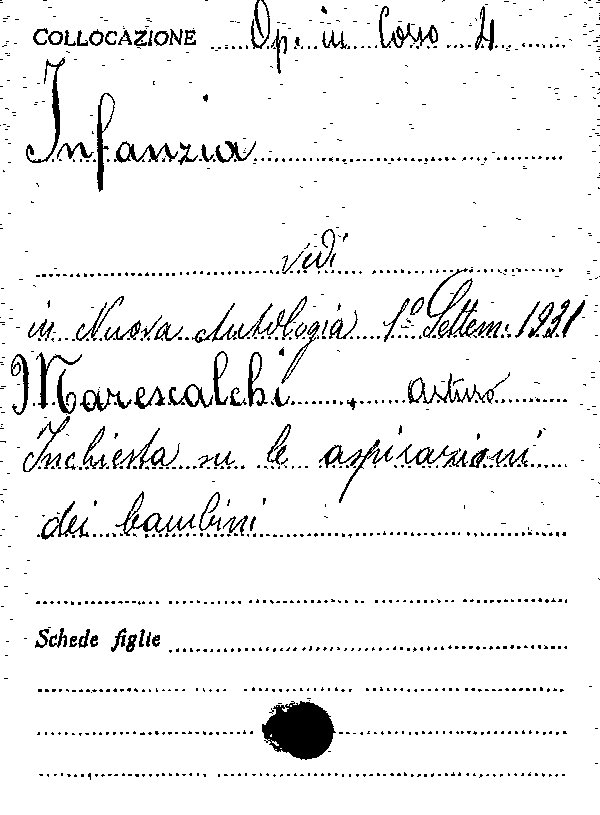 COLLOCAZIONE Op. in Corso 4
Infanzia
vedi
in Nuova Antologia 1º Settem. 1931
Marescalchi, Arturo
Inchiesta su le aspirazioni
dei bambini
Schede figlie